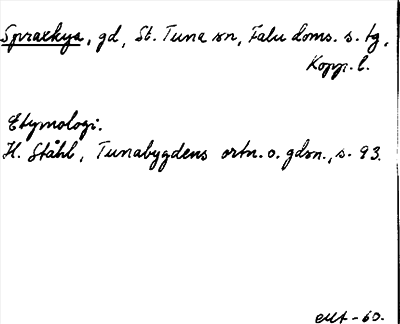 Spraxkya, gd, St. Tuna sn, Falu doms. s. tg,
Kopp. l.
Etymologi.
H. Ståhl, Tunabygdens ortn. o. gdsn., s. 93.
EMt - 60.